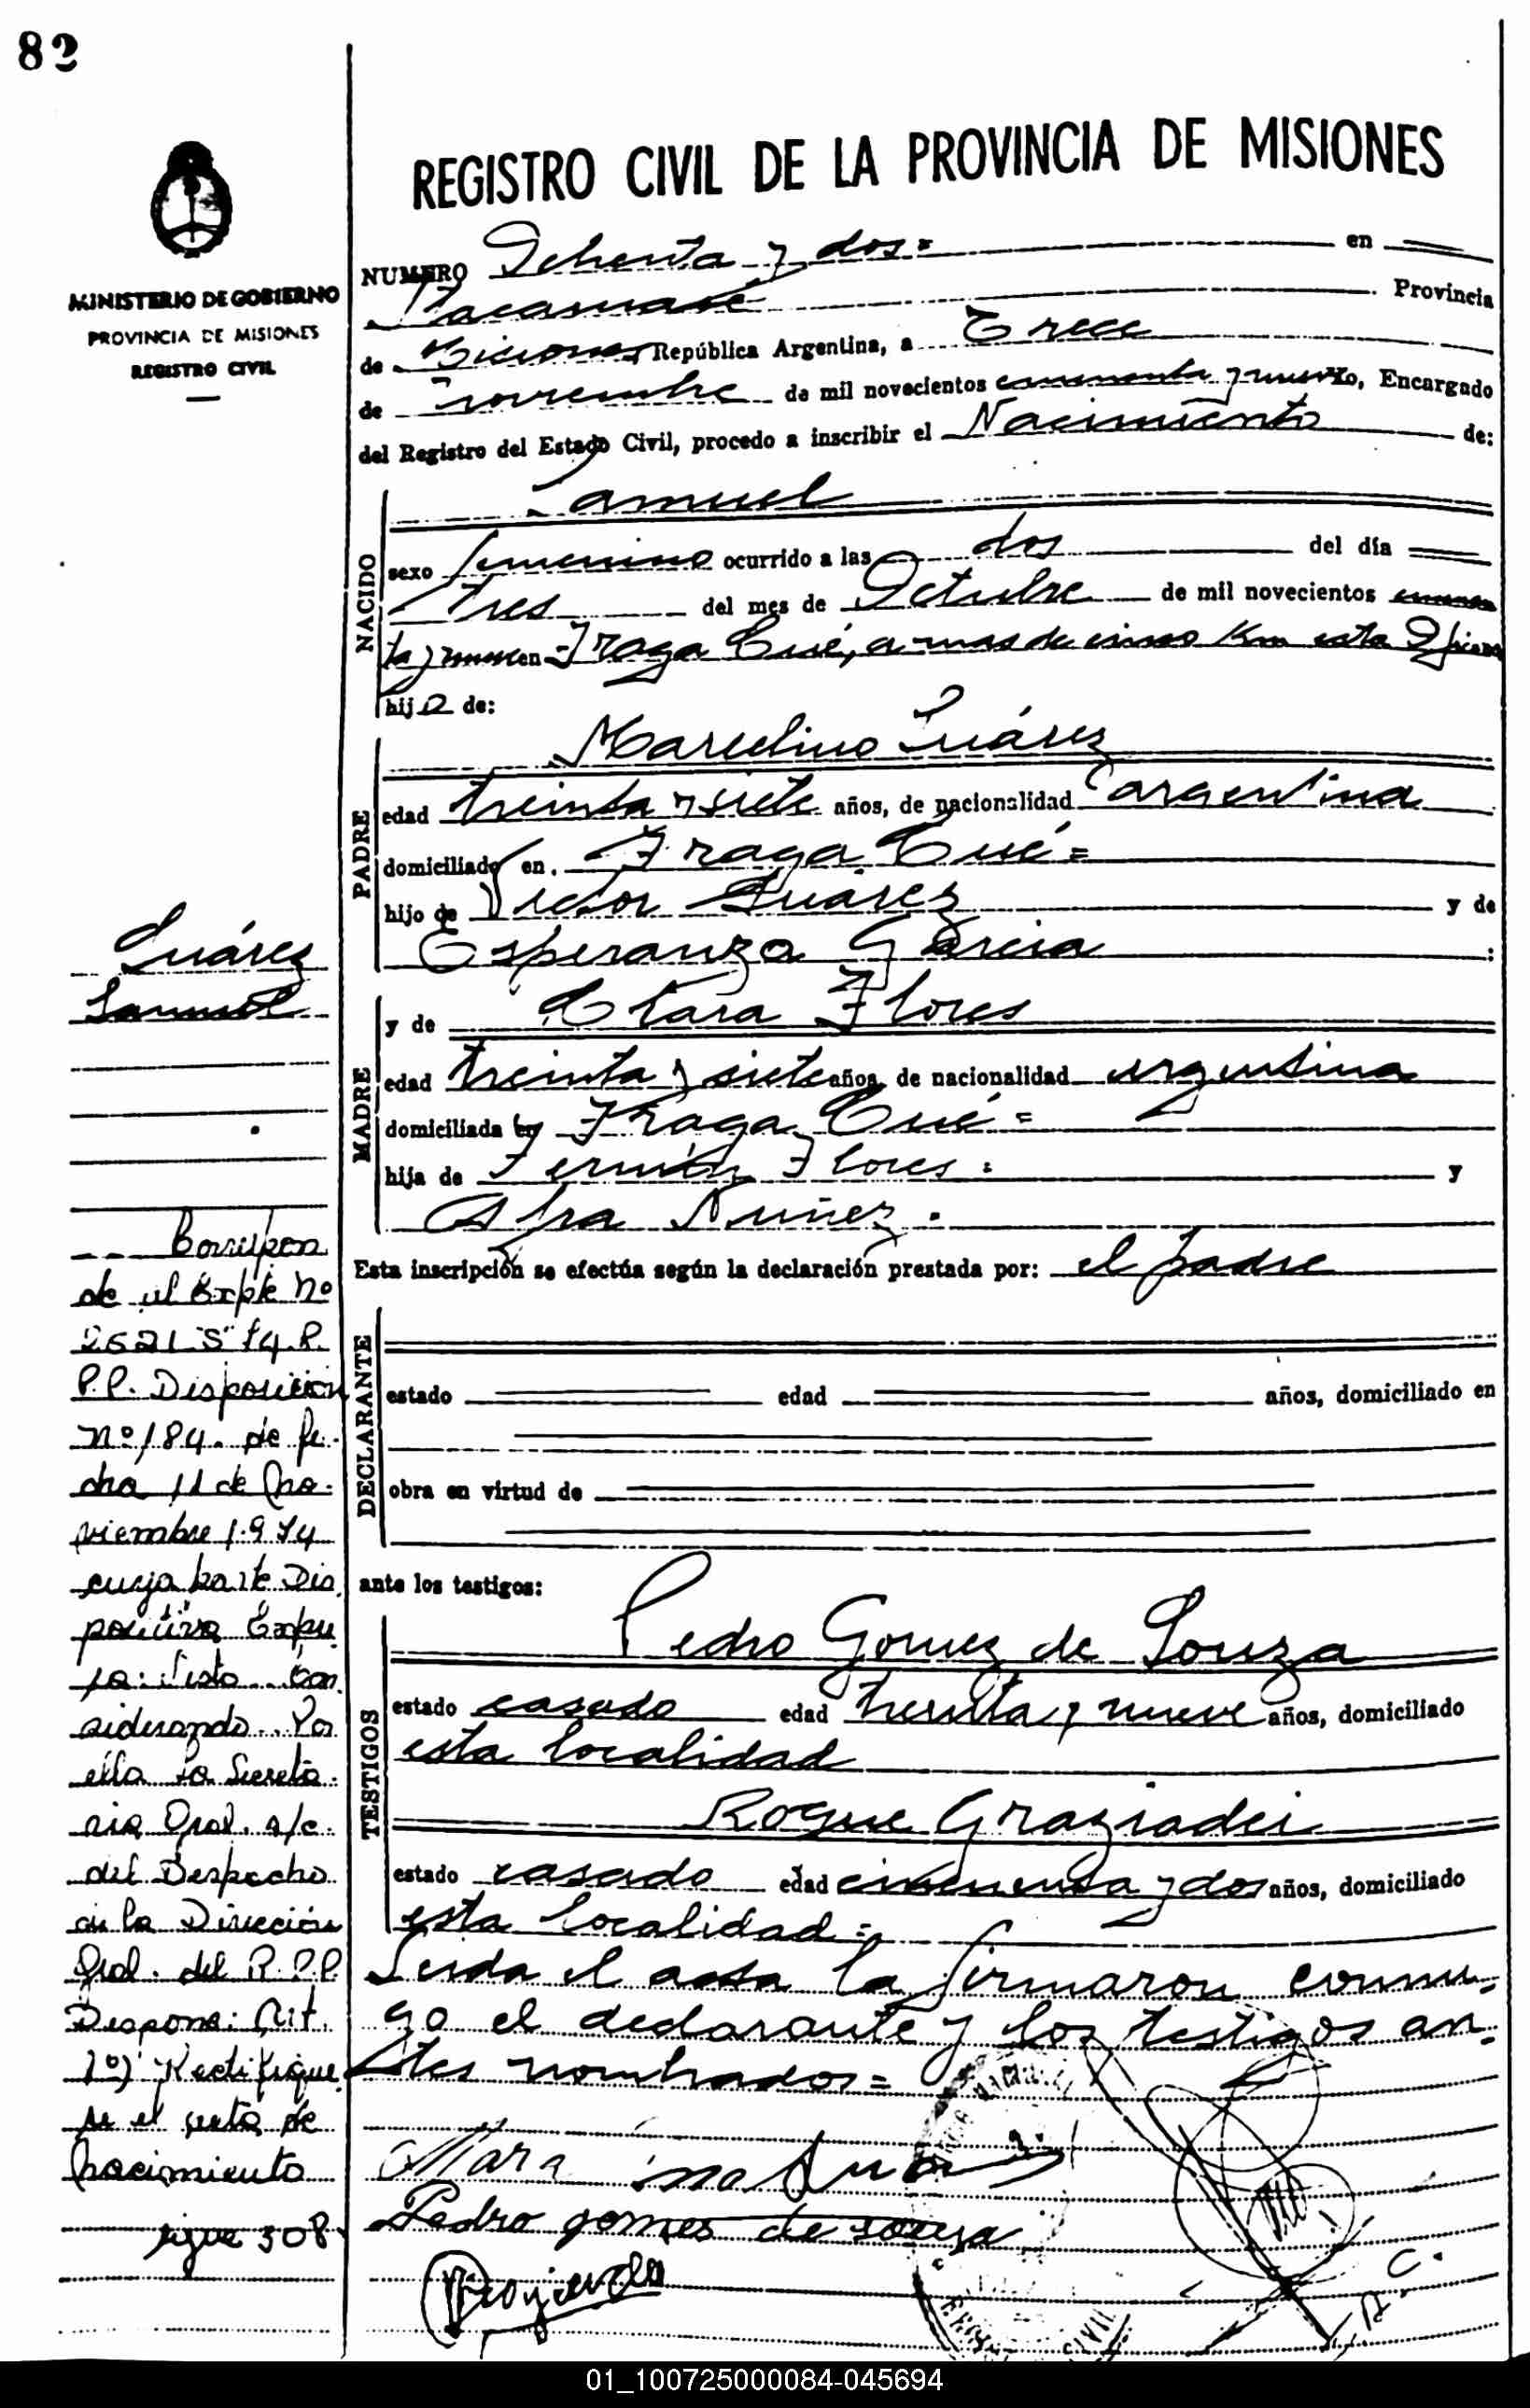 82
MINISTERIO DE GOBIERNO
PROVINCIA DE MISIONES
REGISTRO CIVIL
REGISTRO CIVIL DE LA PROVINCIA DE MISIONES
NUMERO Ochenta y dos = en
Provincia
de Misiones República Argentina, a Trece
de noviembre de mil novecientos cincuenta y nueve, Encargado
del Registro del Estado Civil, procedo a inscribir el Nacimiento de:
NACIDO
Samuel
sexo femenino ocurrido a las dos del día
tres del mes de Octubre de mil novecientos cincuen
ta y nueve en Fraga Cué, a mas de cinco Km esta Oficina
hijo de:
PADRE
Marcelino Suárez
edad treinta y siete años, de nacionalidad argentina
domiciliado en Fraga Cué =
hijo de Victor Suárez y de
Esperanza Garcia :
MADRE
y de Clara Flores
edad treinta y siete años, de nacionalidad argentina
domiciliada en Fraga Cué =
hija de Fermín Flores = y
Afra Nuñez.
Esta inscripción se efectúa según la declaración prestada por: el padre
DECLARANTE
estado edad años, domiciliado en
obra en virtud de
ante los testigos:
TESTIGOS
Pedro Gomez de Souza
estado casado edad treinta y nueve años, domiciliado
esta localidad
Roque Graziadei
estado casado edad cincuenta y dos años, domiciliado
esta localidad =
Leida el acta la firmaron conmi-
go el declarante y los testigos an-
tes nombrados =
Pedro gomes de souza
Suárez
Samuel
Correspon
de al Expte Nº
2621 "S" 74. R.
P.P. Disposición
Nº 184. de fe-
cha 11 de No-
viembre 1.974
cuya parte Dis
positiva Expre
sa: Visto.. Con
siderando.. Por
ello la Secreta-
ria Gral. a/c.
del Despacho
de la Dirección
Gral. del R.P.P.
Dispone: Art.
1º) Rectifique
se el acta de
nacimiento
sigue 308
01_100725000084-045694